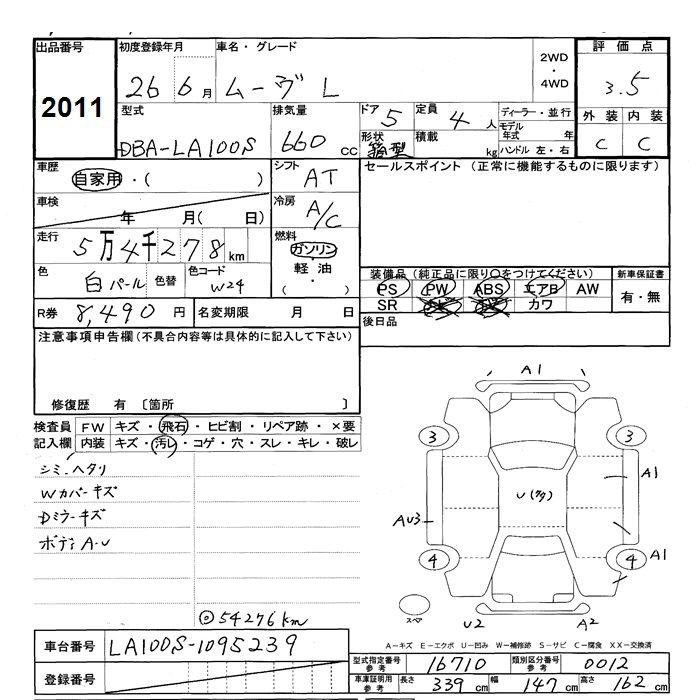 出品番号 初度登録年月 車名・グレード 2WD・4WD 評価点
2011 26 6月 ムーヴ L 3.5
型式 排気量 ドア 5 定員 4人 ディーラー・並行 外装 内装
DBA-LA100S 660cc 形状 箱型 積載 kg モデル年式 年 ハンドル 左・右 C C
車歴 自家用・( ) シフト AT セールスポイント(正常に機能するものに限ります)
車検 年 月( 日) 冷房 A/C
走行 5万4千278km 燃料 ガソリン・軽油・( )
色 白パール 色替 色コード W24 装備品(純正品に限り○をつけてください) 新車保証書
PS PW ABS エアB AW 有・無
R券 8,490円 名変期限 月 日 SR カワ
後日品
注意事項申告欄(不具合内容等は具体的に記入して下さい)
修復歴 有 〔箇所 〕
検査員 FW キズ・飛石・ヒビ割・リペア跡・×要
記入欄 内装 キズ・汚レ・コゲ・穴・スレ・キレ・破レ
シミ、ヘタリ
Wカバーキズ
Dミラーキズ
ボディA-U
◎54276km
A1
3 3
A1
U(多)
AU3
4 4 A1
スペア U2 A2
A-キズ E-エクボ U-凹み W-補修跡 S-サビ C-腐食 XX-交換済
車台番号 LA100S-1095239
登録番号
型式指定番号 参考 16710 類別区分番号 参考 0012
車庫証明用 参考 長さ 339cm 幅 147cm 高さ 162cm